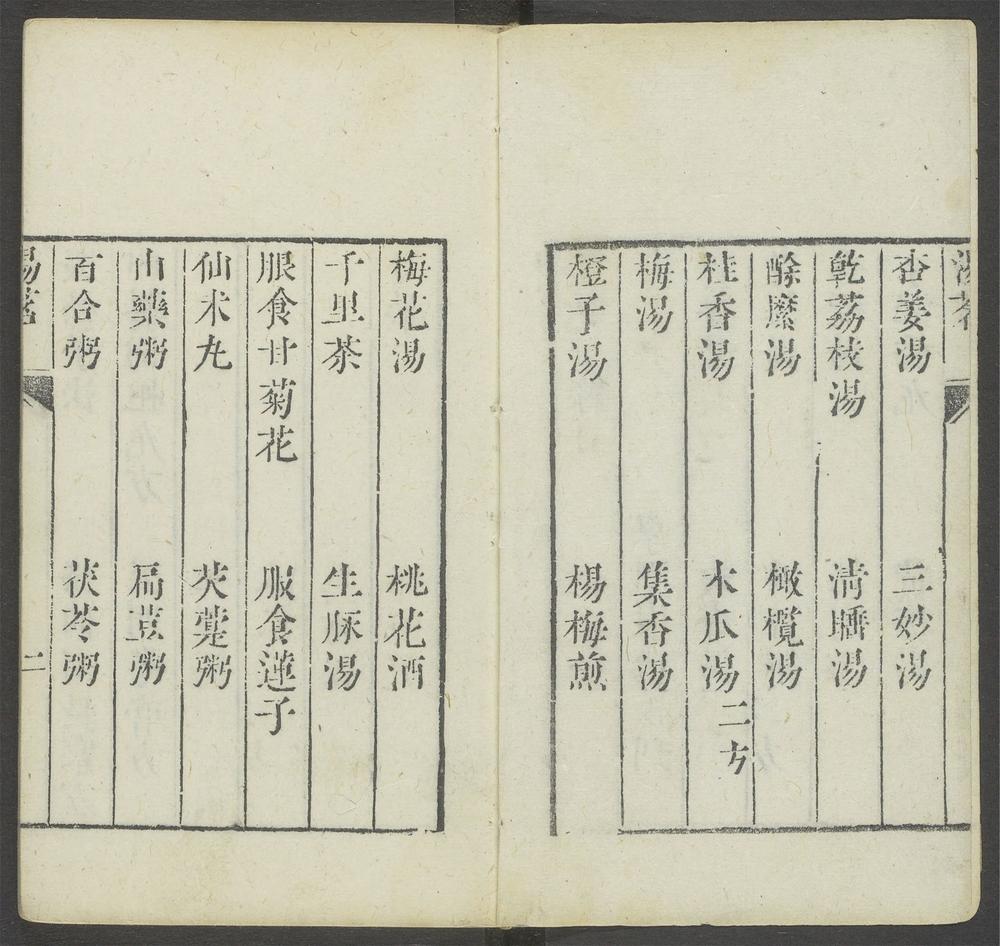 杏姜湯 三妙湯
乾荔枝湯 清䐹湯
酴縻湯 橄欖湯
桂香湯 木瓜湯二方
梅湯 集杏湯
橙子湯 楊梅煎
梅花湯 桃花酒
千里茶 生豚湯
服食甘菊花 服食蓮子
仙术丸 芡薓粥
山藥粥 扁荳粥
百合粥 茯苓粥
二